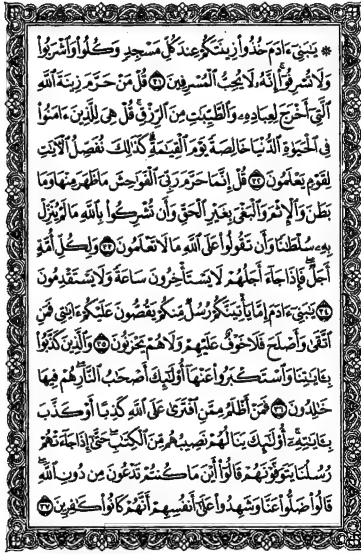 ۞ يَٰبَنِيٓ ءَادَمَ خُذُوا۟ زِينَتَكُمْ عِندَ كُلِّ مَسْجِدٍ وَكُلُوا۟ وَٱشْرَبُوا۟
وَلَا تُسْرِفُوٓا۟ إِنَّهُۥ لَا يُحِبُّ ٱلْمُسْرِفِينَ ٣١ قُلْ مَنْ حَرَّمَ زِينَةَ ٱللَّهِ
ٱلَّتِيٓ أَخْرَجَ لِعِبَادِهِۦ وَٱلطَّيِّبَٰتِ مِنَ ٱلرِّزْقِ قُلْ هِيَ لِلَّذِينَ ءَامَنُوا۟
فِي ٱلْحَيَوٰةِ ٱلدُّنْيَا خَالِصَةً يَوْمَ ٱلْقِيَٰمَةِ كَذَٰلِكَ نُفَصِّلُ ٱلْءَايَٰتِ
لِقَوْمٍ يَعْلَمُونَ ٣٢ قُلْ إِنَّمَا حَرَّمَ رَبِّيَ ٱلْفَوَٰحِشَ مَا ظَهَرَ مِنْهَا وَمَا
بَطَنَ وَٱلْإِثْمَ وَٱلْبَغْيَ بِغَيْرِ ٱلْحَقِّ وَأَن تُشْرِكُوا۟ بِٱللَّهِ مَا لَمْ يُنَزِّلْ
بِهِۦ سُلْطَٰنًا وَأَن تَقُولُوا۟ عَلَى ٱللَّهِ مَا لَا تَعْلَمُونَ ٣٣ وَلِكُلِّ أُمَّةٍ
أَجَلٌ فَإِذَا جَآءَ أَجَلُهُمْ لَا يَسْتَأْخِرُونَ سَاعَةً وَلَا يَسْتَقْدِمُونَ
٣٤ يَٰبَنِيٓ ءَادَمَ إِمَّا يَأْتِيَنَّكُمْ رُسُلٌ مِّنكُمْ يَقُصُّونَ عَلَيْكُمْ ءَايَٰتِي فَمَنِ
ٱتَّقَىٰ وَأَصْلَحَ فَلَا خَوْفٌ عَلَيْهِمْ وَلَا هُمْ يَحْزَنُونَ ٣٥ وَٱلَّذِينَ كَذَّبُوا۟
بِـَٔايَٰتِنَا وَٱسْتَكْبَرُوا۟ عَنْهَآ أُو۟لَٰٓئِكَ أَصْحَٰبُ ٱلنَّارِ هُمْ فِيهَا
خَٰلِدُونَ ٣٦ فَمَنْ أَظْلَمُ مِمَّنِ ٱفْتَرَىٰ عَلَى ٱللَّهِ كَذِبًا أَوْ كَذَّبَ
بِـَٔايَٰتِهِۦٓ أُو۟لَٰٓئِكَ يَنَالُهُمْ نَصِيبُهُم مِّنَ ٱلْكِتَٰبِ حَتَّىٰٓ إِذَا جَآءَتْهُمْ
رُسُلُنَا يَتَوَفَّوْنَهُمْ قَالُوٓا۟ أَيْنَ مَا كُنتُمْ تَدْعُونَ مِن دُونِ ٱللَّهِ
قَالُوا۟ ضَلُّوا۟ عَنَّا وَشَهِدُوا۟ عَلَىٰٓ أَنفُسِهِمْ أَنَّهُمْ كَانُوا۟ كَٰفِرِينَ ٣٧